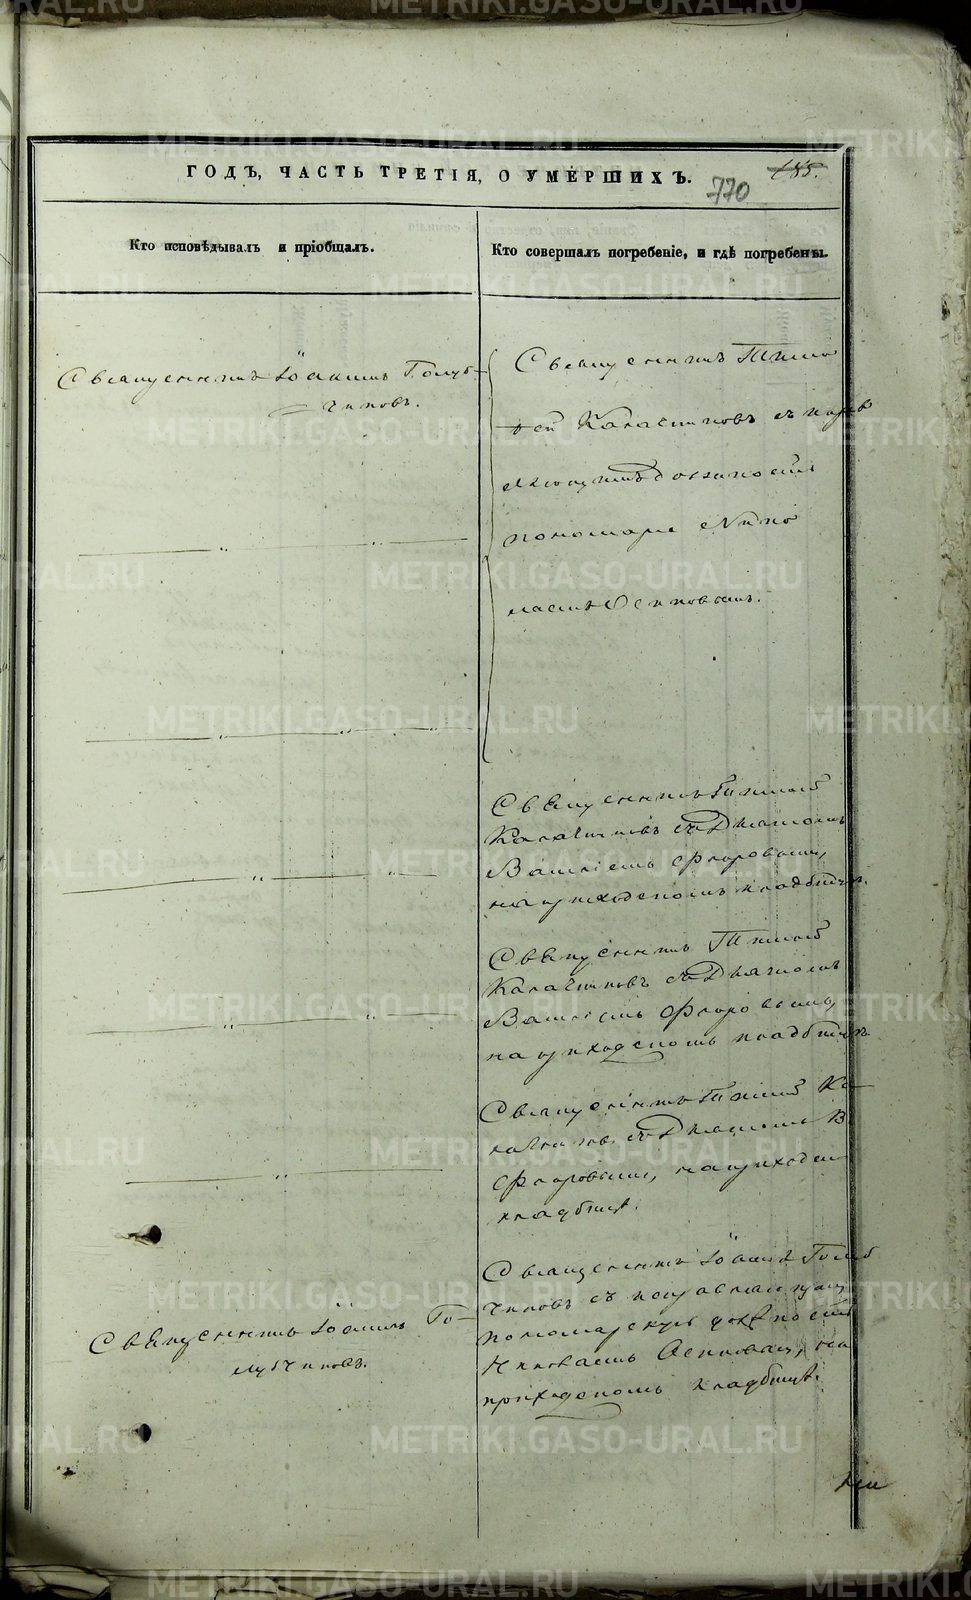 ГОДЪ, ЧАСТЬ ТРЕТІЯ, О УМЕРШИХЪ.
770
185.
Кто исповѣдывалъ и пріобщалъ.
Кто совершалъ погребеніе, и гдѣ погребены.
Священникъ Іоакимъ Голуб-
чиковъ.
Священникъ Тимо
фей Калачниковъ съ
должность
пономаря
Осиповымъ.
Свѣщенникъ Тимофей
Калачниковъ съ Дьякономъ
Василіемъ Флоровымъ,
на приходскомъ кладбищѣ.
Свѣщенникъ Тимофей
Калачниковъ съ Дьякономъ
Василіемъ Флоровымъ,
на приходскомъ кладбищѣ
Священникъ Тимофей Ка
лачниковъ съ Дьякономъ В
Флоровымъ, на приходском
кладбищѣ.
Свѣщенникъ Іоакимъ Го-
лубчиковъ.
Священникъ Іоакимъ Голуб
чиковъ съ исправляющимъ
пономарскую должность
Осиповым, на
приходскомъ кладбищѣ.
METRIKI.GASO-URAL.RU